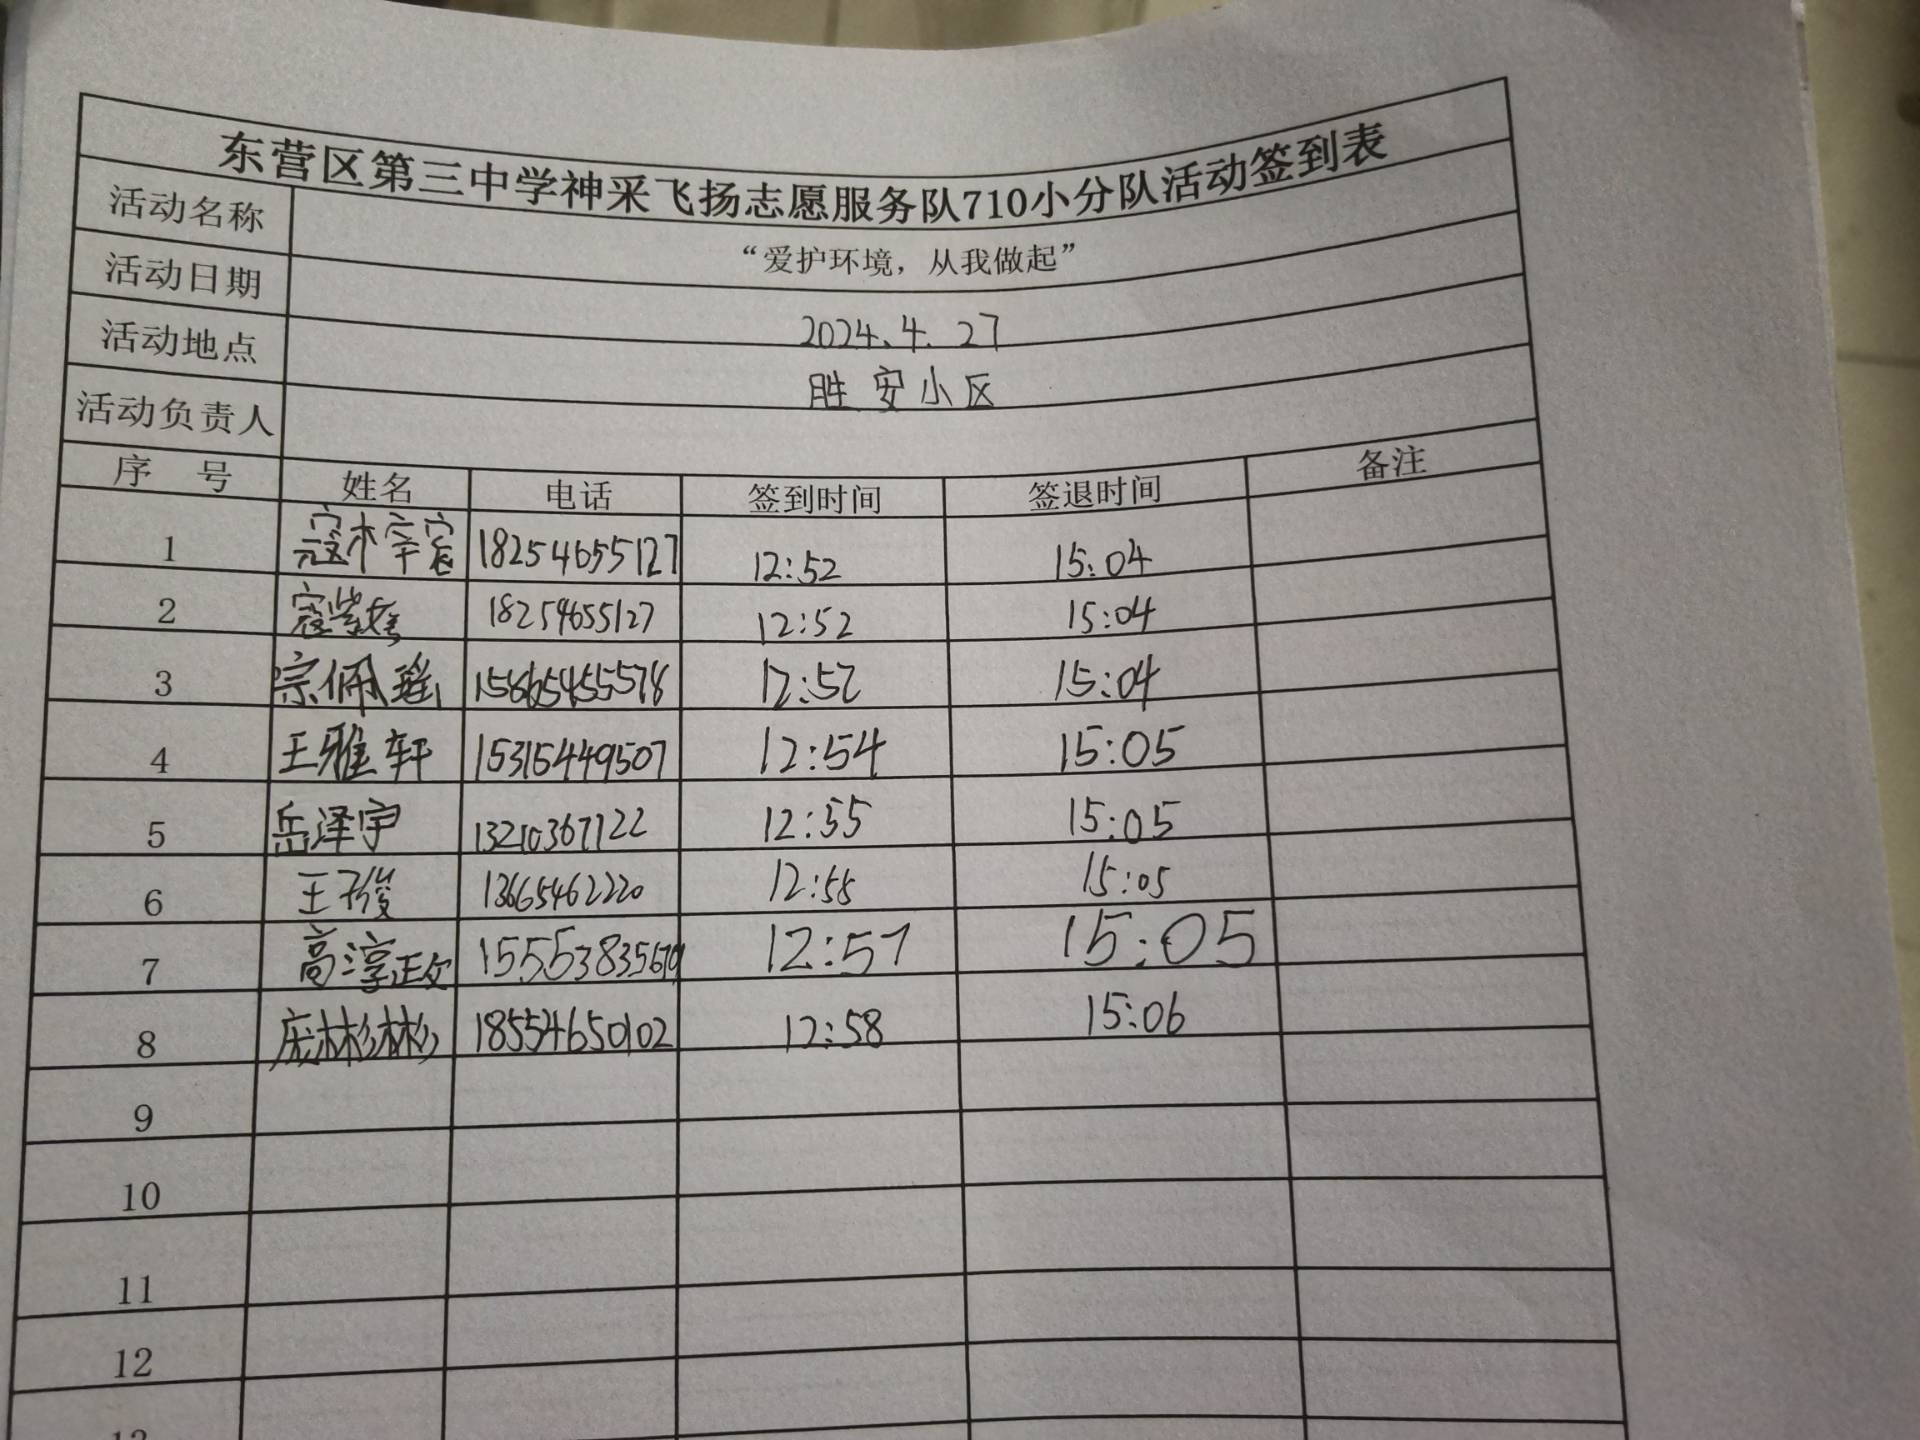 东营区第三中学神采飞扬志愿服务队710小分队活动签到表
活动名称 “爱护环境，从我做起”
活动日期 2024.4.27
活动地点 胜安小区
活动负责人
序 号 姓名 电话 签到时间 签退时间 备注
1 寇梓宸 18254655127 12:52 15:04
2 寇紫 18254655127 12:52 15:04
3 宗佩瑶 15865455578 12:52 15:04
4 王雅轩 15315449507 12:54 15:05
5 岳泽宇 13210367122 12:55 15:05
6 王子俊 13665462220 12:55 15:05
7 高淳政 12:57 15:05
8 庞彬彬 18554650102 12:58 15:06
9
10
11
12
13